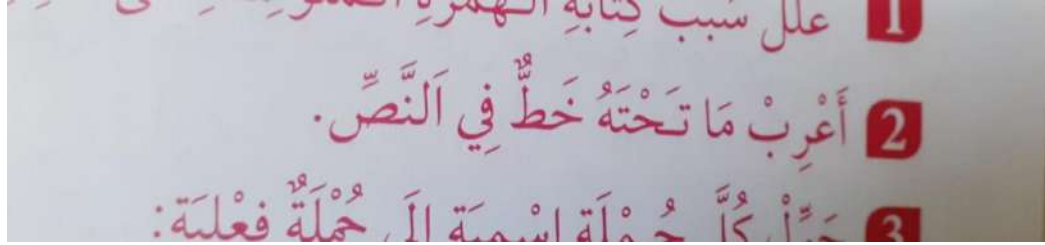 1 علل سبب كِتَابَةِ الْهَمْزَةِ
2 أَعْرِبْ مَا تَحْتَهُ خَطٌّ فِي اَلنَّصِّ.
3 حَوِّلْ كُلَّ جُمْلَةٍ اِسْمِيَةٍ إِلَى جُمْلَةٌ فِعْلِيَة: